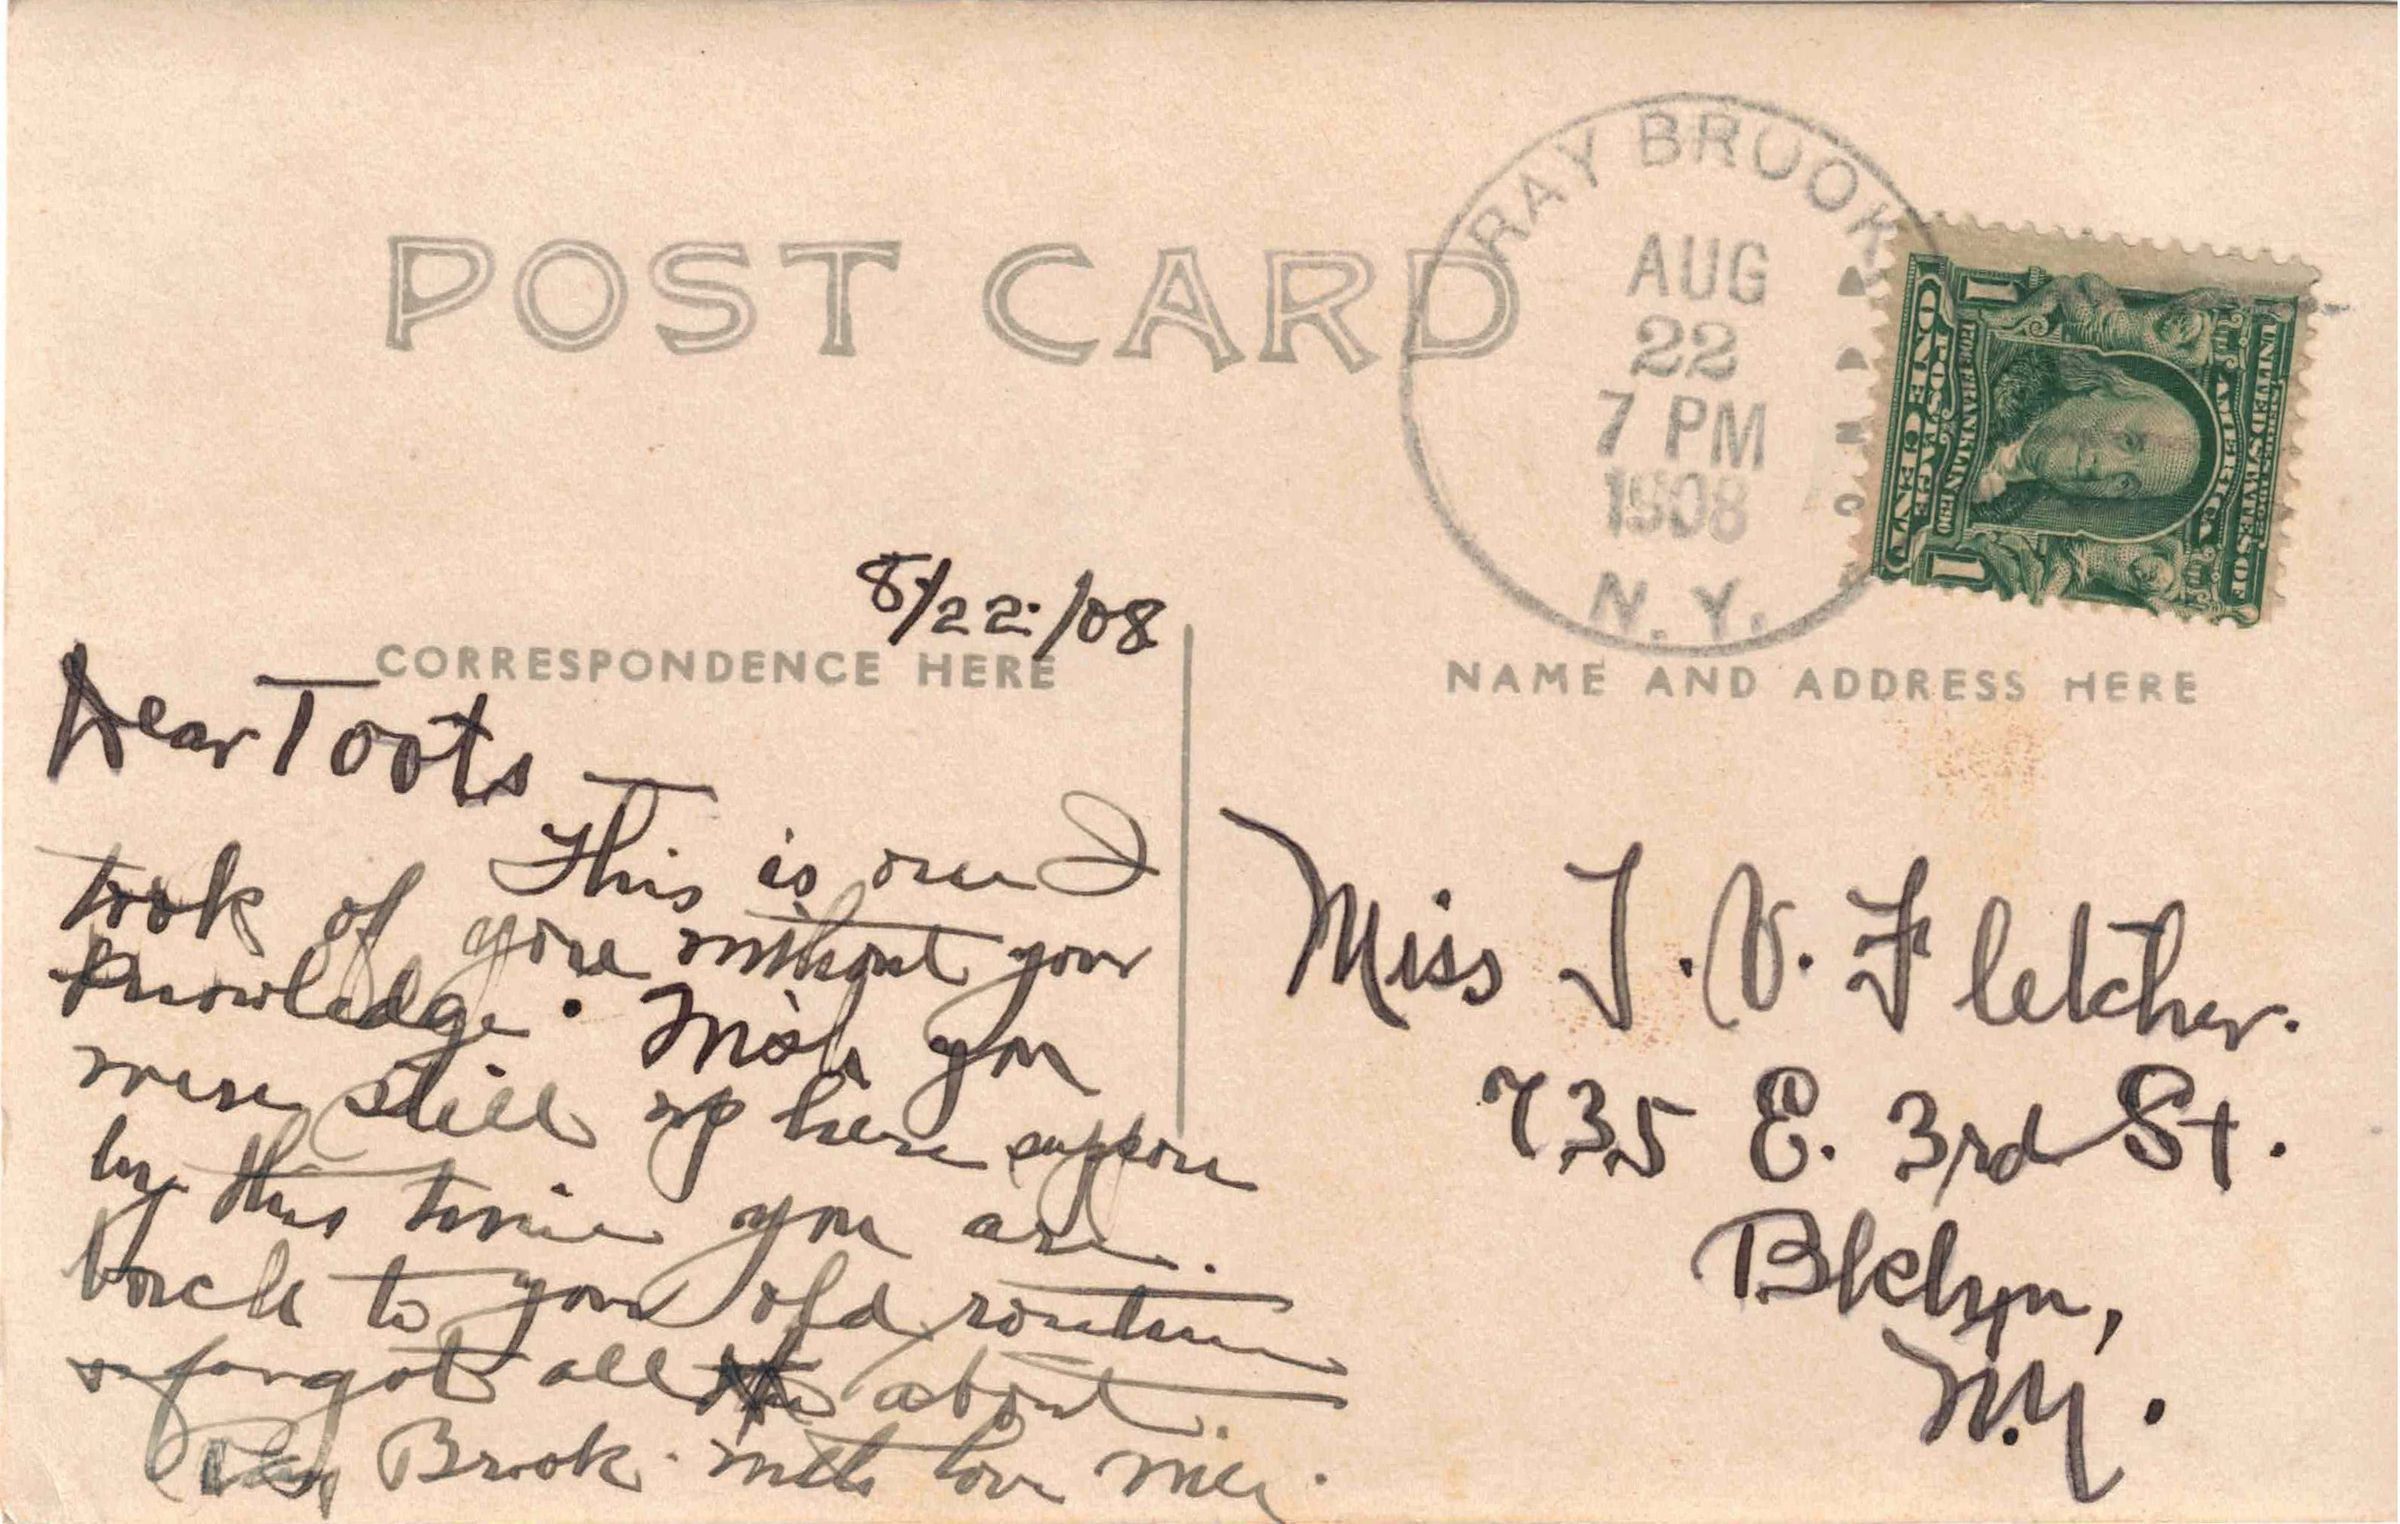 RAY BROOK
AUG
22
7 PM
1908
N. Y.
POST CARD
UNITED STATES OF AMERICA
SERIES 1902
BENJ. FRANKLIN
POSTAGE
ONE CENT
1 1
8/22./08
CORRESPONDENCE HERE
NAME AND ADDRESS HERE
Dear Toots
This is one I
took of you without your
knowledge. Wish you
were still up here suppose
by this time you are.
back to your old routine
& forgot all about
Ray Brook. with love
Miss J. V. Fletcher.
735 E. 3rd St.
Bklyn,
N.Y.